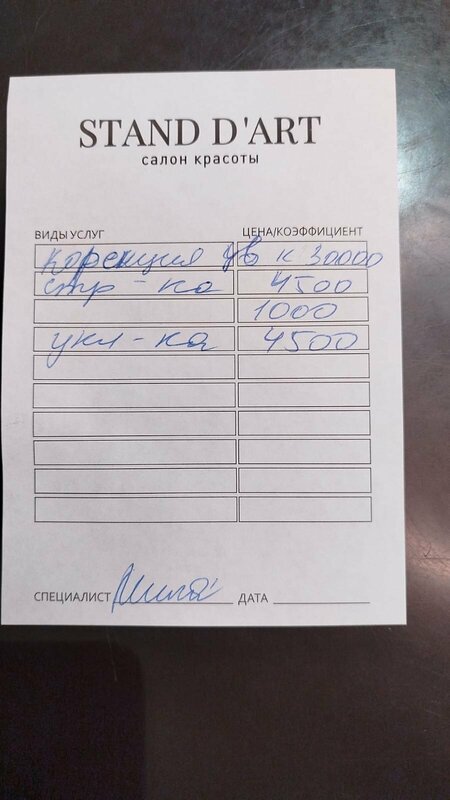 STAND D'ART
салон красоты
ВИДЫ УСЛУГ ЦЕНА/КОЭФФИЦИЕНТ
Корекция цв к 30000
стр-ка 4500
1000
укл-ка 4500
СПЕЦИАЛИСТ Мила ДАТА